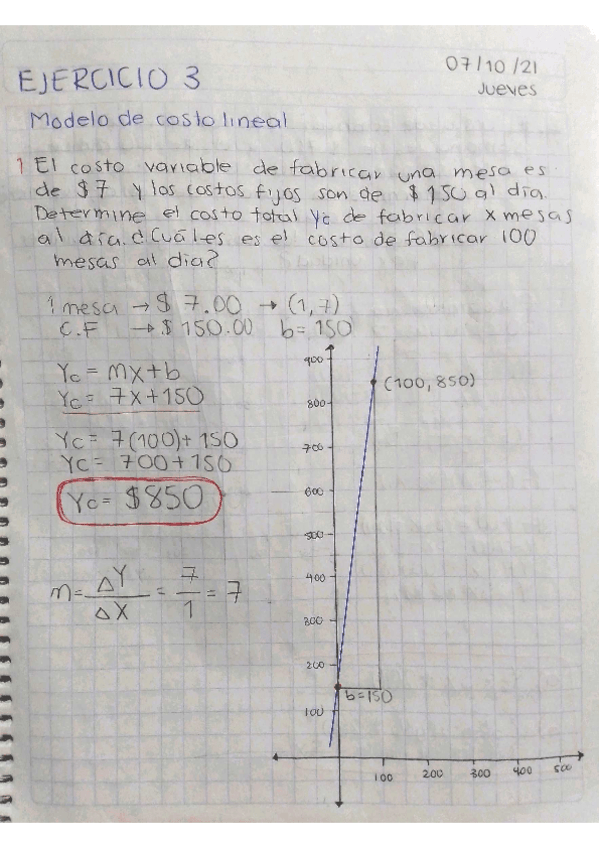 07/10/21
EJERCICIO 3
Jueves
Modelo de costo lineal
1 El costo variable de fabricar una mesa es
de $7 y los costos fijos son de $150 al día.
Determine el costo total Yc de fabricar x mesas
al día. ¿Cuáles es el costo de fabricar 100
mesas al día?
1 mesa → $ 7.00 → (1,7)
C.F → $ 150.00 b = 150
Yc = mx+b
Yc = 7x+150
Yc = 7(100)+150
Yc = 700+150
Yc = $850
m = ΔY/ΔX = 7/1 = 7
900
(100,850)
800
700
600
500
400
300
200
b=150
100
100 200 300 400 500